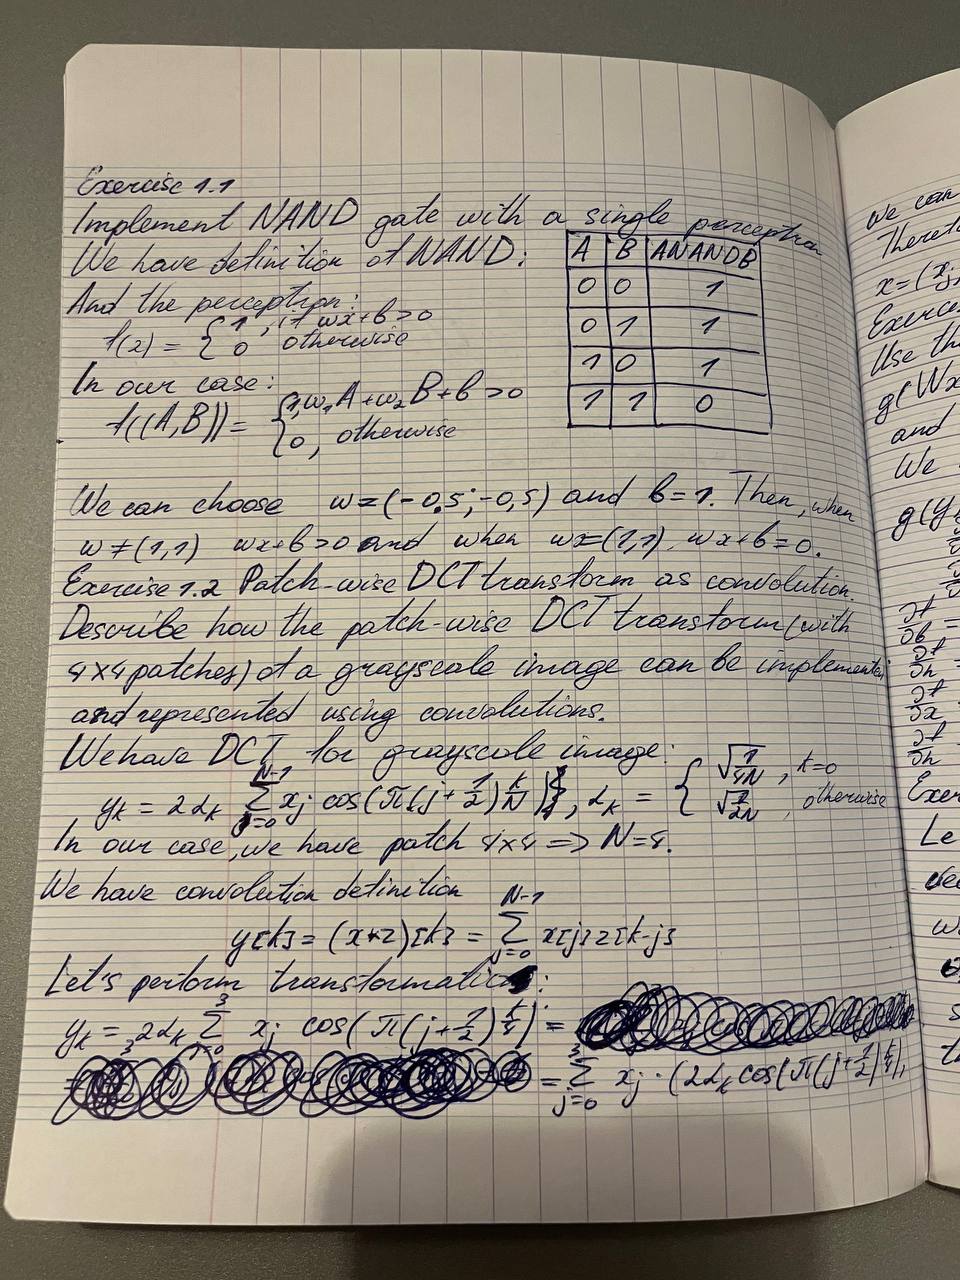 Exercise 1.1
Implement NAND gate with a single perceptron
We have definition of NAND:
A B ANANDB
0 0 1
0 1 1
1 0 1
1 1 0
And the perceptron:
f(x) = { 1, if wx+b>0
0 otherwise
In our case:
f((A,B)) = { 1, w₁A+w₂B+b>0
0, otherwise
We can choose w=(-0,5;-0,5) and b=1. Then, when
w≠(1,1) wx+b>0 and when w=(1,1), wx+b=0.
Exercise 1.2 Patch-wise DCT transform as convolution.
Describe how the patch-wise DCT transform (with
4x4 patches) of a grayscale image can be implemented
and represented using convolutions.
We have DCT for grayscale image:
yₖ = 2αₖ Σ_{j=0}^{N-1} xⱼ cos(π(j+1/2)k/N), αₖ = { √(1/4N), k=0
√(1/2N), otherwise
In our case, we have patch 4x4 => N=4.
We have convolution definition
y[k] = (x*z)[k] = Σ_{j=0}^{N-1} x[j]z[k-j]
Let's perform transformation:
yₖ = 2αₖ Σ_{j=0}^{3} xⱼ cos(π(j+1/2)k/4) =
= Σ_{j=0}^{3} xⱼ·(2αₖcos(π(j+1/2)k/4),
We can
x=(xⱼ,
Use th
g(Wx
and
We
g(y
∂f
∂b =
∂f
∂h
∂f
∂x
∂f
∂h
Exer
Le